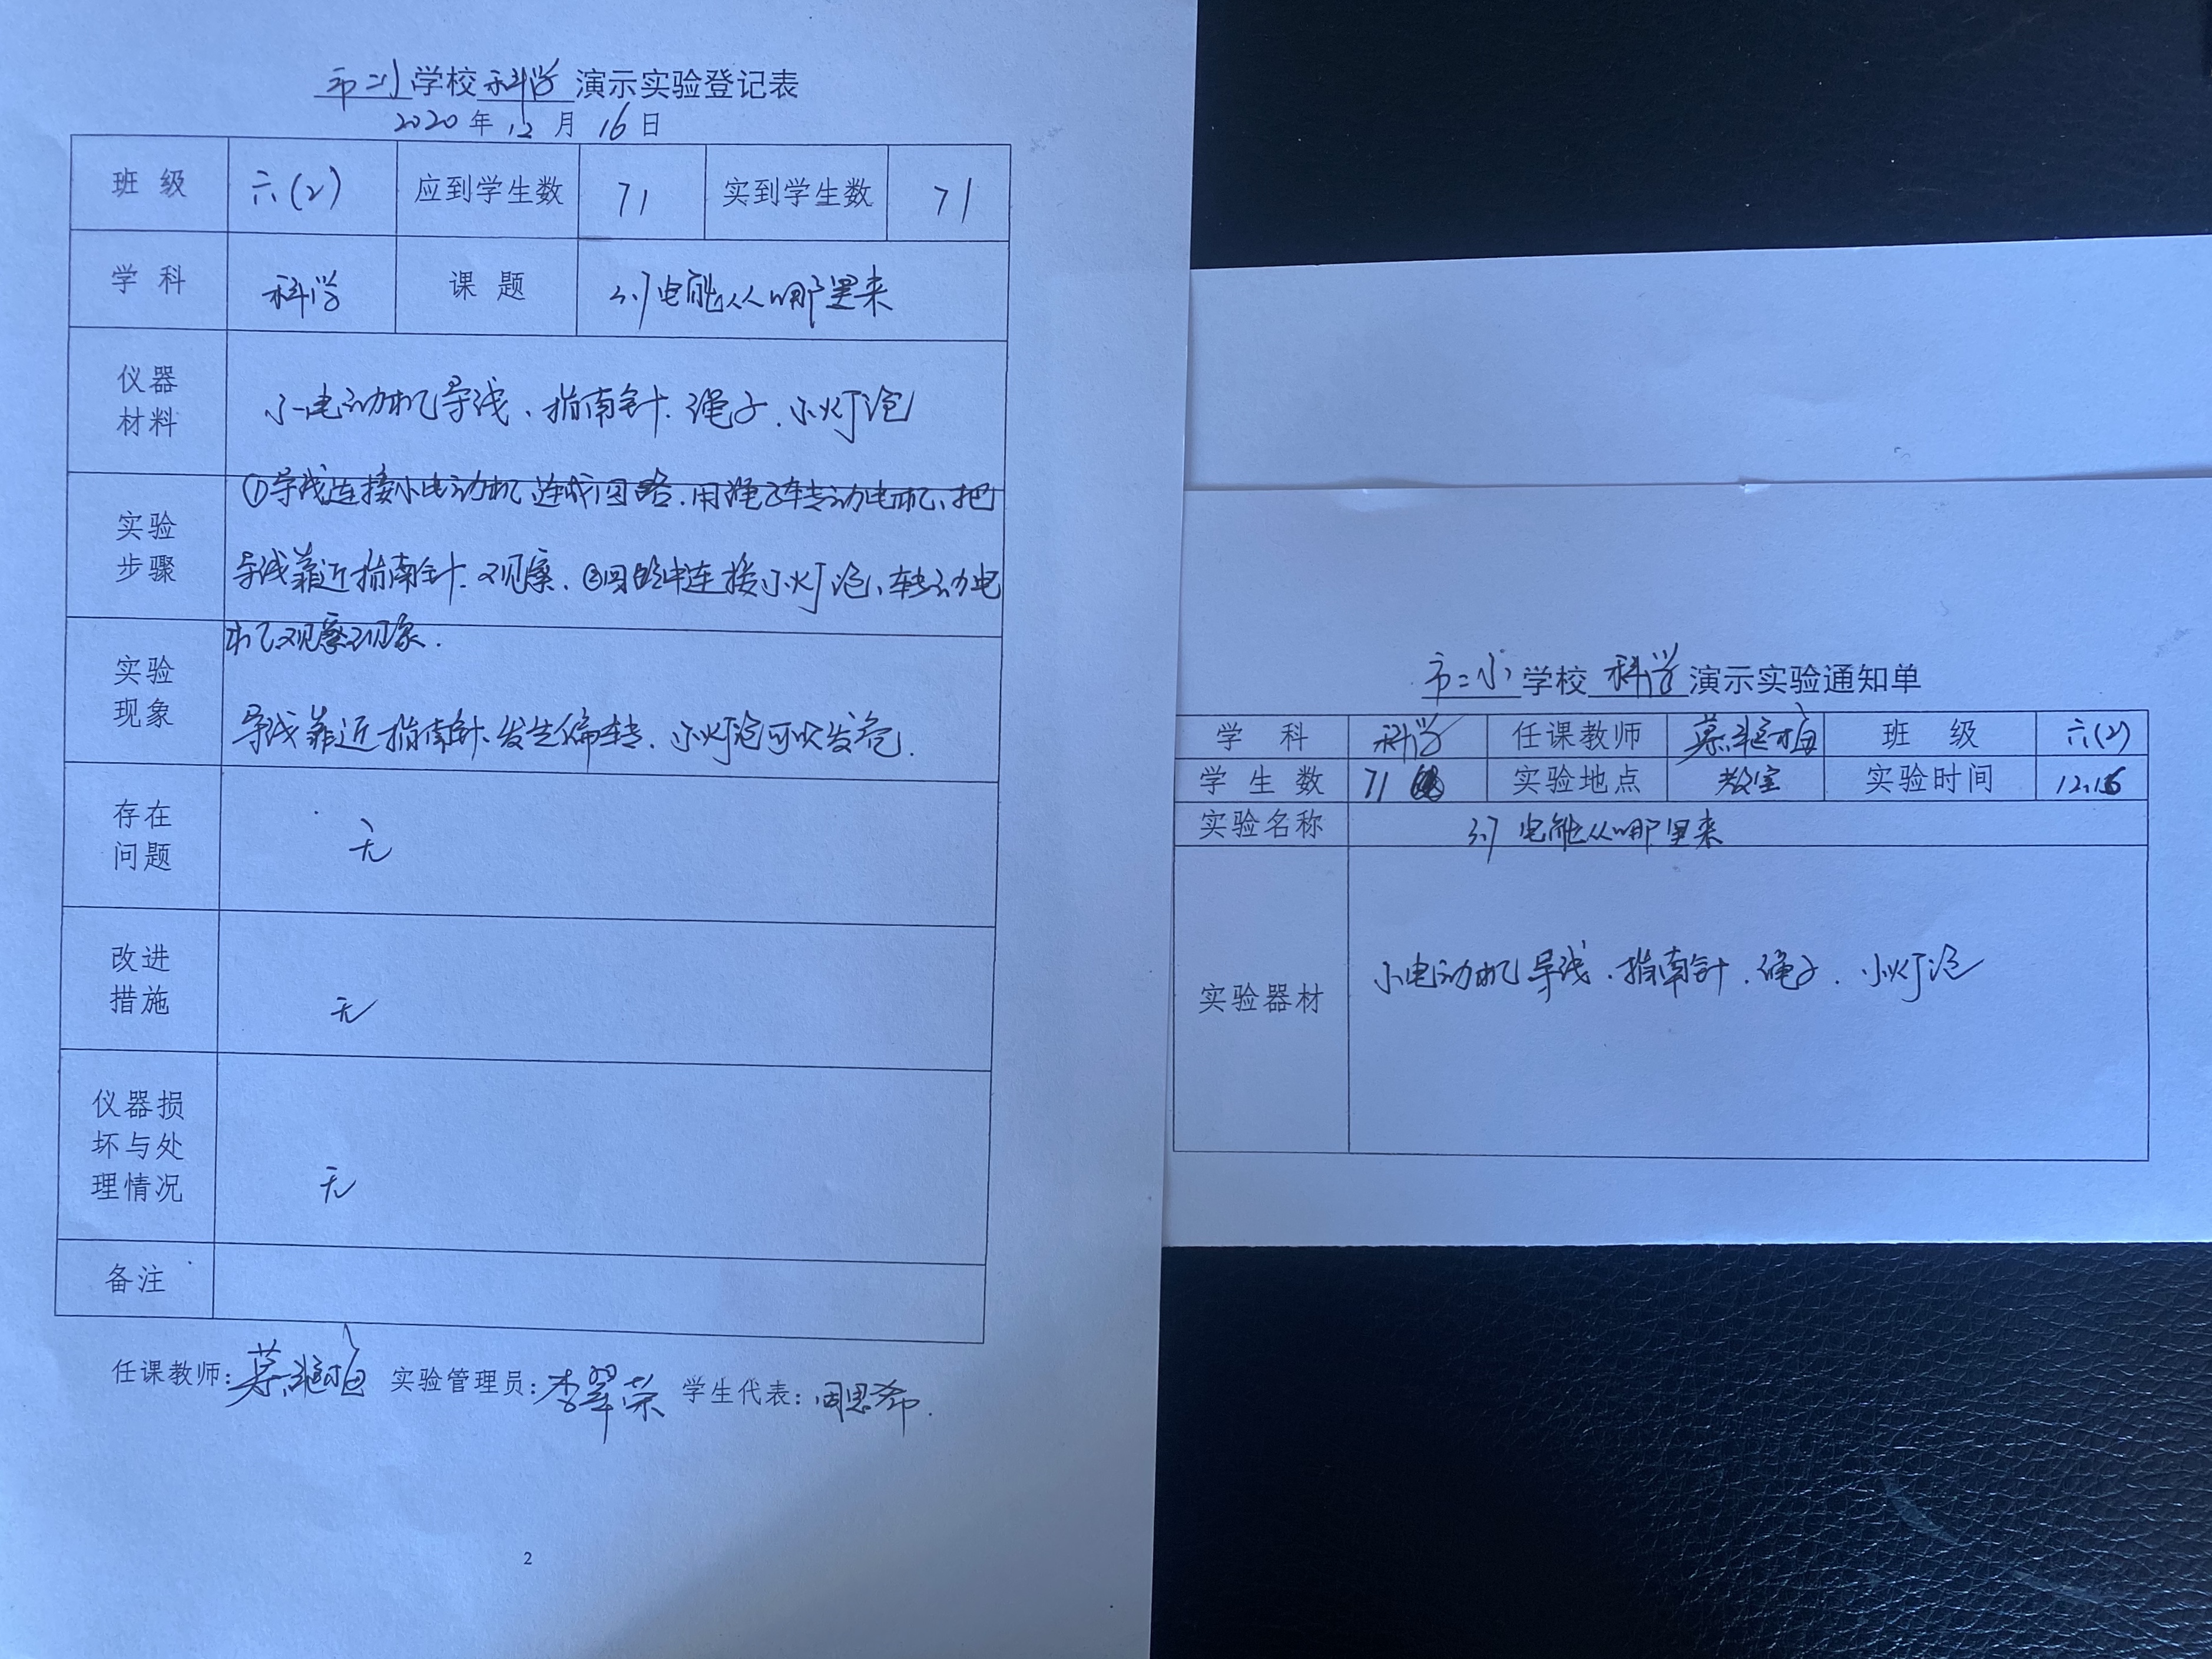 市二小学校科学演示实验登记表
2020年12月16日
班级 六(2) 应到学生数 71 实到学生数 71
学科 科学 课题 3.7电能从哪里来
仪器材料 小电动机导线、指南针、绳子、小灯泡
实验步骤 ①导线连接小电动机连成回路.用绳子转动电机、把
导线靠近指南针.观察.②回路中连接小灯泡、转动电
机观察现象.
实验现象 导线靠近指南针、发生偏转.小灯泡可以发亮.
存在问题 无
改进措施 无
仪器损坏与处理情况 无
备注
任课教师: 实验管理员:李翠荣 学生代表:周思希.
2
市二小学校科学演示实验通知单
学科 科学 任课教师 班级 六(2)
学生数 71 实验地点 教室 实验时间 12.16
实验名称 3.7 电能从哪里来
实验器材 小电动机导线、指南针、绳子、小灯泡